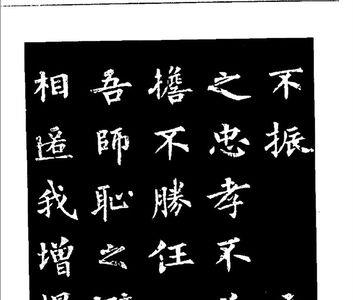 不振
之忠孝不
擔不勝任
吾師恥之
相逼我增